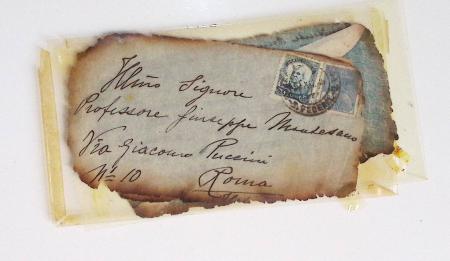 Illmo Signore
Professore Giuseppe Montesano
Via Giacomo Puccini
No 10 Roma